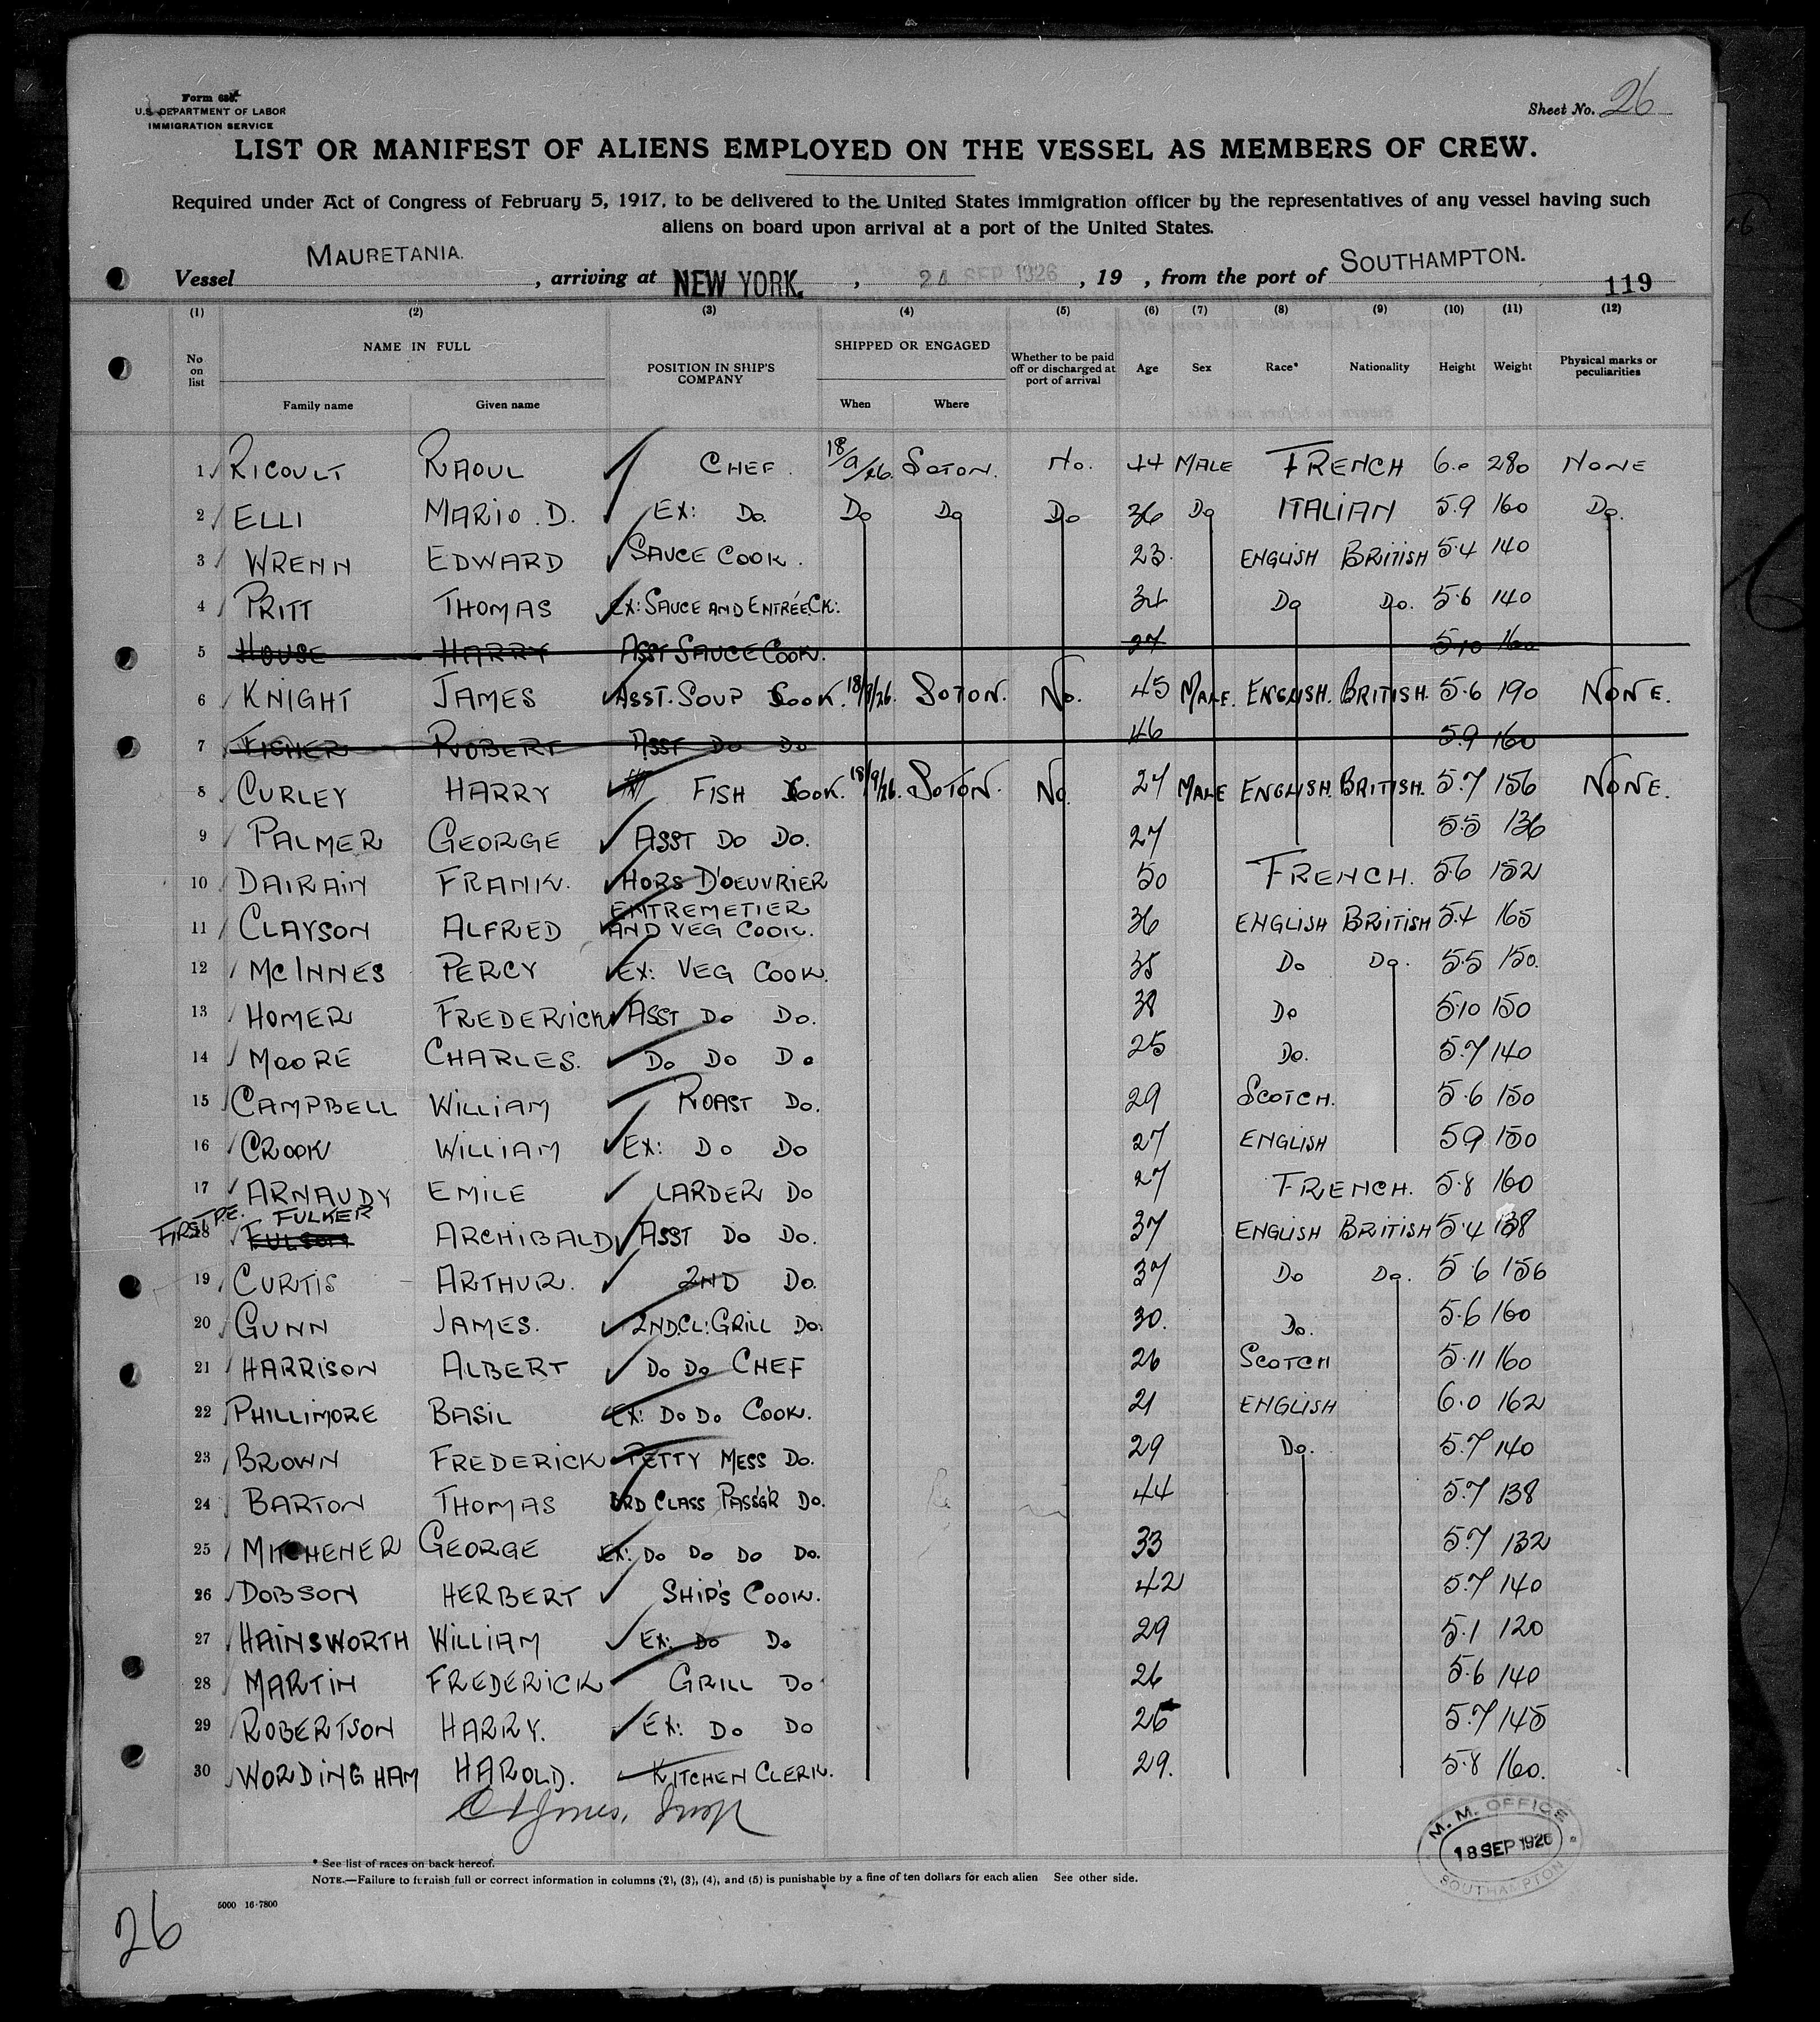 Form 689
U.S. DEPARTMENT OF LABOR
IMMIGRATION SERVICE
Sheet No. 26
LIST OR MANIFEST OF ALIENS EMPLOYED ON THE VESSEL AS MEMBERS OF CREW.
Required under Act of Congress of February 5, 1917, to be delivered to the United States immigration officer by the representatives of any vessel having such
aliens on board upon arrival at a port of the United States.
Vessel MAURETANIA. , arriving at NEW YORK. , 24 SEP 1926 , 19 , from the port of SOUTHAMPTON.
119
(1) (2) (3) (4) (5) (6) (7) (8) (9) (10) (11) (12)
No on list NAME IN FULL Family name Given name POSITION IN SHIP'S COMPANY SHIPPED OR ENGAGED When Where Whether to be paid off or discharged at port of arrival Age Sex Race* Nationality Height Weight Physical marks or peculiarities
1 RICOULT RAOUL CHEF. 18/9/26. SOTON. No. 44 MALE FRENCH 6.0 280 NONE
2 ELLI MARIO. D. EX: Do. Do Do Do 36 Do ITALIAN 5.9 160 Do.
3 WRENN EDWARD SAUCE COOK. 23. ENGLISH BRITISH 5.4 140
4 PRITT THOMAS EX: SAUCE AND ENTRÉE CK: 34 Do Do. 5.6 140
5 HOUSE HARRY ASST SAUCE COOK. 27 5.10 160
6 KNIGHT JAMES ASST. SOUP COOK. 18/9/26. SOTON. No. 45 MALE. ENGLISH. BRITISH. 5.6 190 NONE.
7 FISHER ROBERT ASST Do Do 46 5.9 160
8 CURLEY HARRY FISH COOK. 18/9/26. SOTON. No 27 MALE ENGLISH. BRITISH. 5.7 156 NONE.
9 PALMER GEORGE ASST Do Do. 27 5.5 136
10 DAIRAIN FRANK. HORS D'OEUVRIER 50 FRENCH. 5.6 152
11 CLAYSON ALFRED ENTREMETIER AND VEG COOK. 36 ENGLISH BRITISH 5.4 165
12 MCINNES PERCY EX: VEG COOK. 35 Do Do. 5.5 150.
13 HOMER FREDERICK ASST Do Do. 38 Do 5.10 150
14 MOORE CHARLES. Do Do Do 25 Do. 5.7 140
15 CAMPBELL WILLIAM ROAST Do. 29 SCOTCH. 5.6 150
16 CROOK WILLIAM EX: Do Do 27 ENGLISH 5.9 150
17 ARNAUDY EMILE LARDER Do 27 FRENCH. 5.8 160
FIRST P.E. FULKER
18 FULSON ARCHIBALD ASST Do Do. 37 ENGLISH BRITISH 5.4 138
19 CURTIS ARTHUR. 2ND Do. 37 Do Do. 5.6 156
20 GUNN JAMES. 2ND.CL: GRILL Do. 30. Do. 5.6 160
21 HARRISON ALBERT Do Do CHEF 26 SCOTCH 5.11 160
22 PHILLIMORE BASIL EX: Do Do COOK. 21 ENGLISH 6.0 162
23 BROWN FREDERICK PETTY MESS Do. 29 Do. 5.7 140
24 BARTON THOMAS 3RD CLASS PASS'G'R Do. 44 5.7 138
25 MITCHENER GEORGE EX: Do Do Do Do. 33 5.7 132
26 DOBSON HERBERT SHIP'S COOK. 42 5.7 140
27 HAINSWORTH WILLIAM EX: Do Do 29 5.1 120
28 MARTIN FREDERICK GRILL Do 26 5.6 140
29 ROBERTSON HARRY. EX: Do Do 26 5.7 145
30 WORDINGHAM HAROLD. KITCHEN CLERK. 29. 5.8 160.
Jones, Insp
M. M. OFFICE
18 SEP 1926
SOUTHAMPTON
* See list of races on back hereof.
NOTE.—Failure to furnish full or correct information in columns (2), (3), (4), and (5) is punishable by a fine of ten dollars for each alien See other side.
5000 16-7800
26